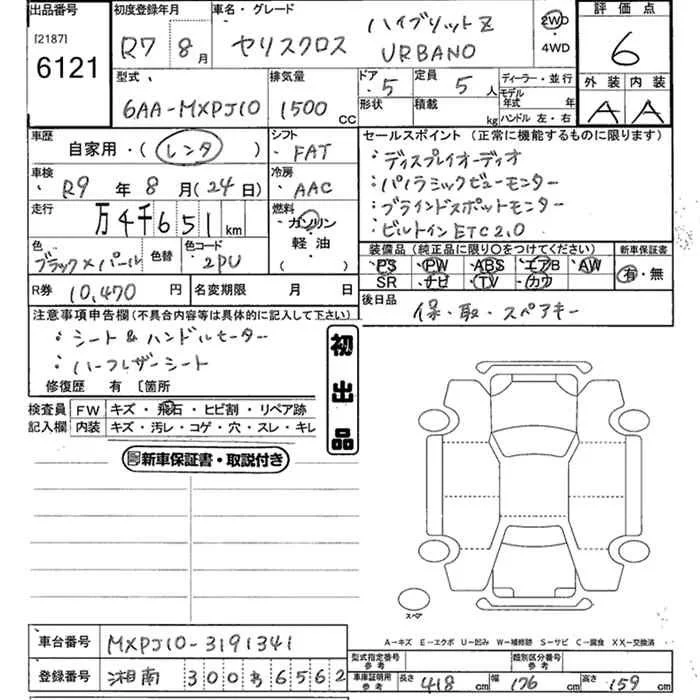 出品番号 初度登録年月 車名・グレード 評価点
[2187] R7 8月 ヤリスクロス ハイブリットZ 2WD 6
6121 URBANO ・4WD
型式 排気量 ドア 定員 ディーラー・並行 外装 内装
6AA-MXPJ10 1500 CC 5 5人 モデル年式 年 A A
形状 積載 kg ハンドル 左・右
車歴 シフト セールスポイント(正常に機能するものに限ります)
自家用・(レンタ) FAT :ディスプレイオーディオ
車検 冷房 :パノラミックビューモニター
R9年8月(24日) AAC :ブラインドスポットモニター
走行 燃料 :ビルトインETC2.0
万4千651km ガソリン
軽油
( )
色 色替 色コード 装備品(純正品に限り○をつけてください) 新車保証書
ブラック×パール 2PU ・PS ・PW ・ABS ・エアB ・AW 有・無
SR ・ナビ ・TV ・カワ
R券 10,470円 名変期限 月 日 後日品
保・取・スペアキー
注意事項申告欄(不具合内容等は具体的に記入して下さい)
:シート&ハンドルヒーター
:ハーフレザーシート
修復歴 有〔箇所
初出品
検査員記入欄 FW キズ・飛石・ヒビ割・リペア跡
内装 キズ・汚レ・コゲ・穴・スレ・キレ
新車保証書・取説付き
スペア
A-キズ E-エクボ U-凹み W-補修跡 S-サビ C-腐食 XX-交換済
車台番号 MXPJ10-3191341
型式指定番号参考 類別区分番号参考
登録番号 湘南 300 6562
車庫証明用参考 長さ 418cm 幅 176cm 高さ 159cm